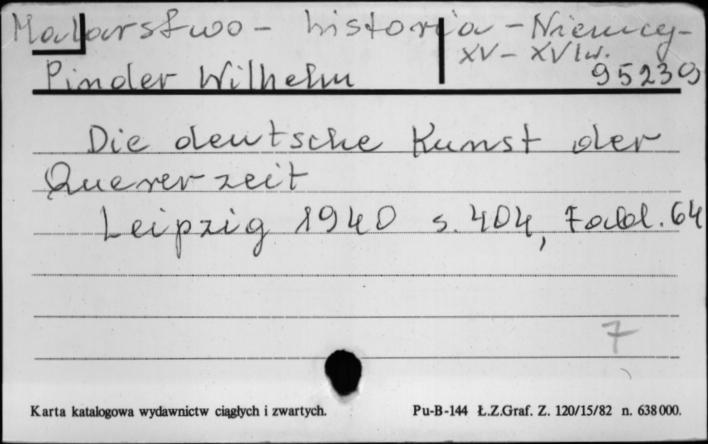 Malarstwo - historia - Niemcy -
XV - XVIw.
Pinder Wilhelm 95239
Die deutsche Kunst der
Quererzeit
Leipzig 1940 s. 404, Tabl. 64
7
Karta katalogowa wydawnictw ciągłych i zwartych. Pu-B-144 Ł.Z.Graf. Z. 120/15/82 n. 638000.